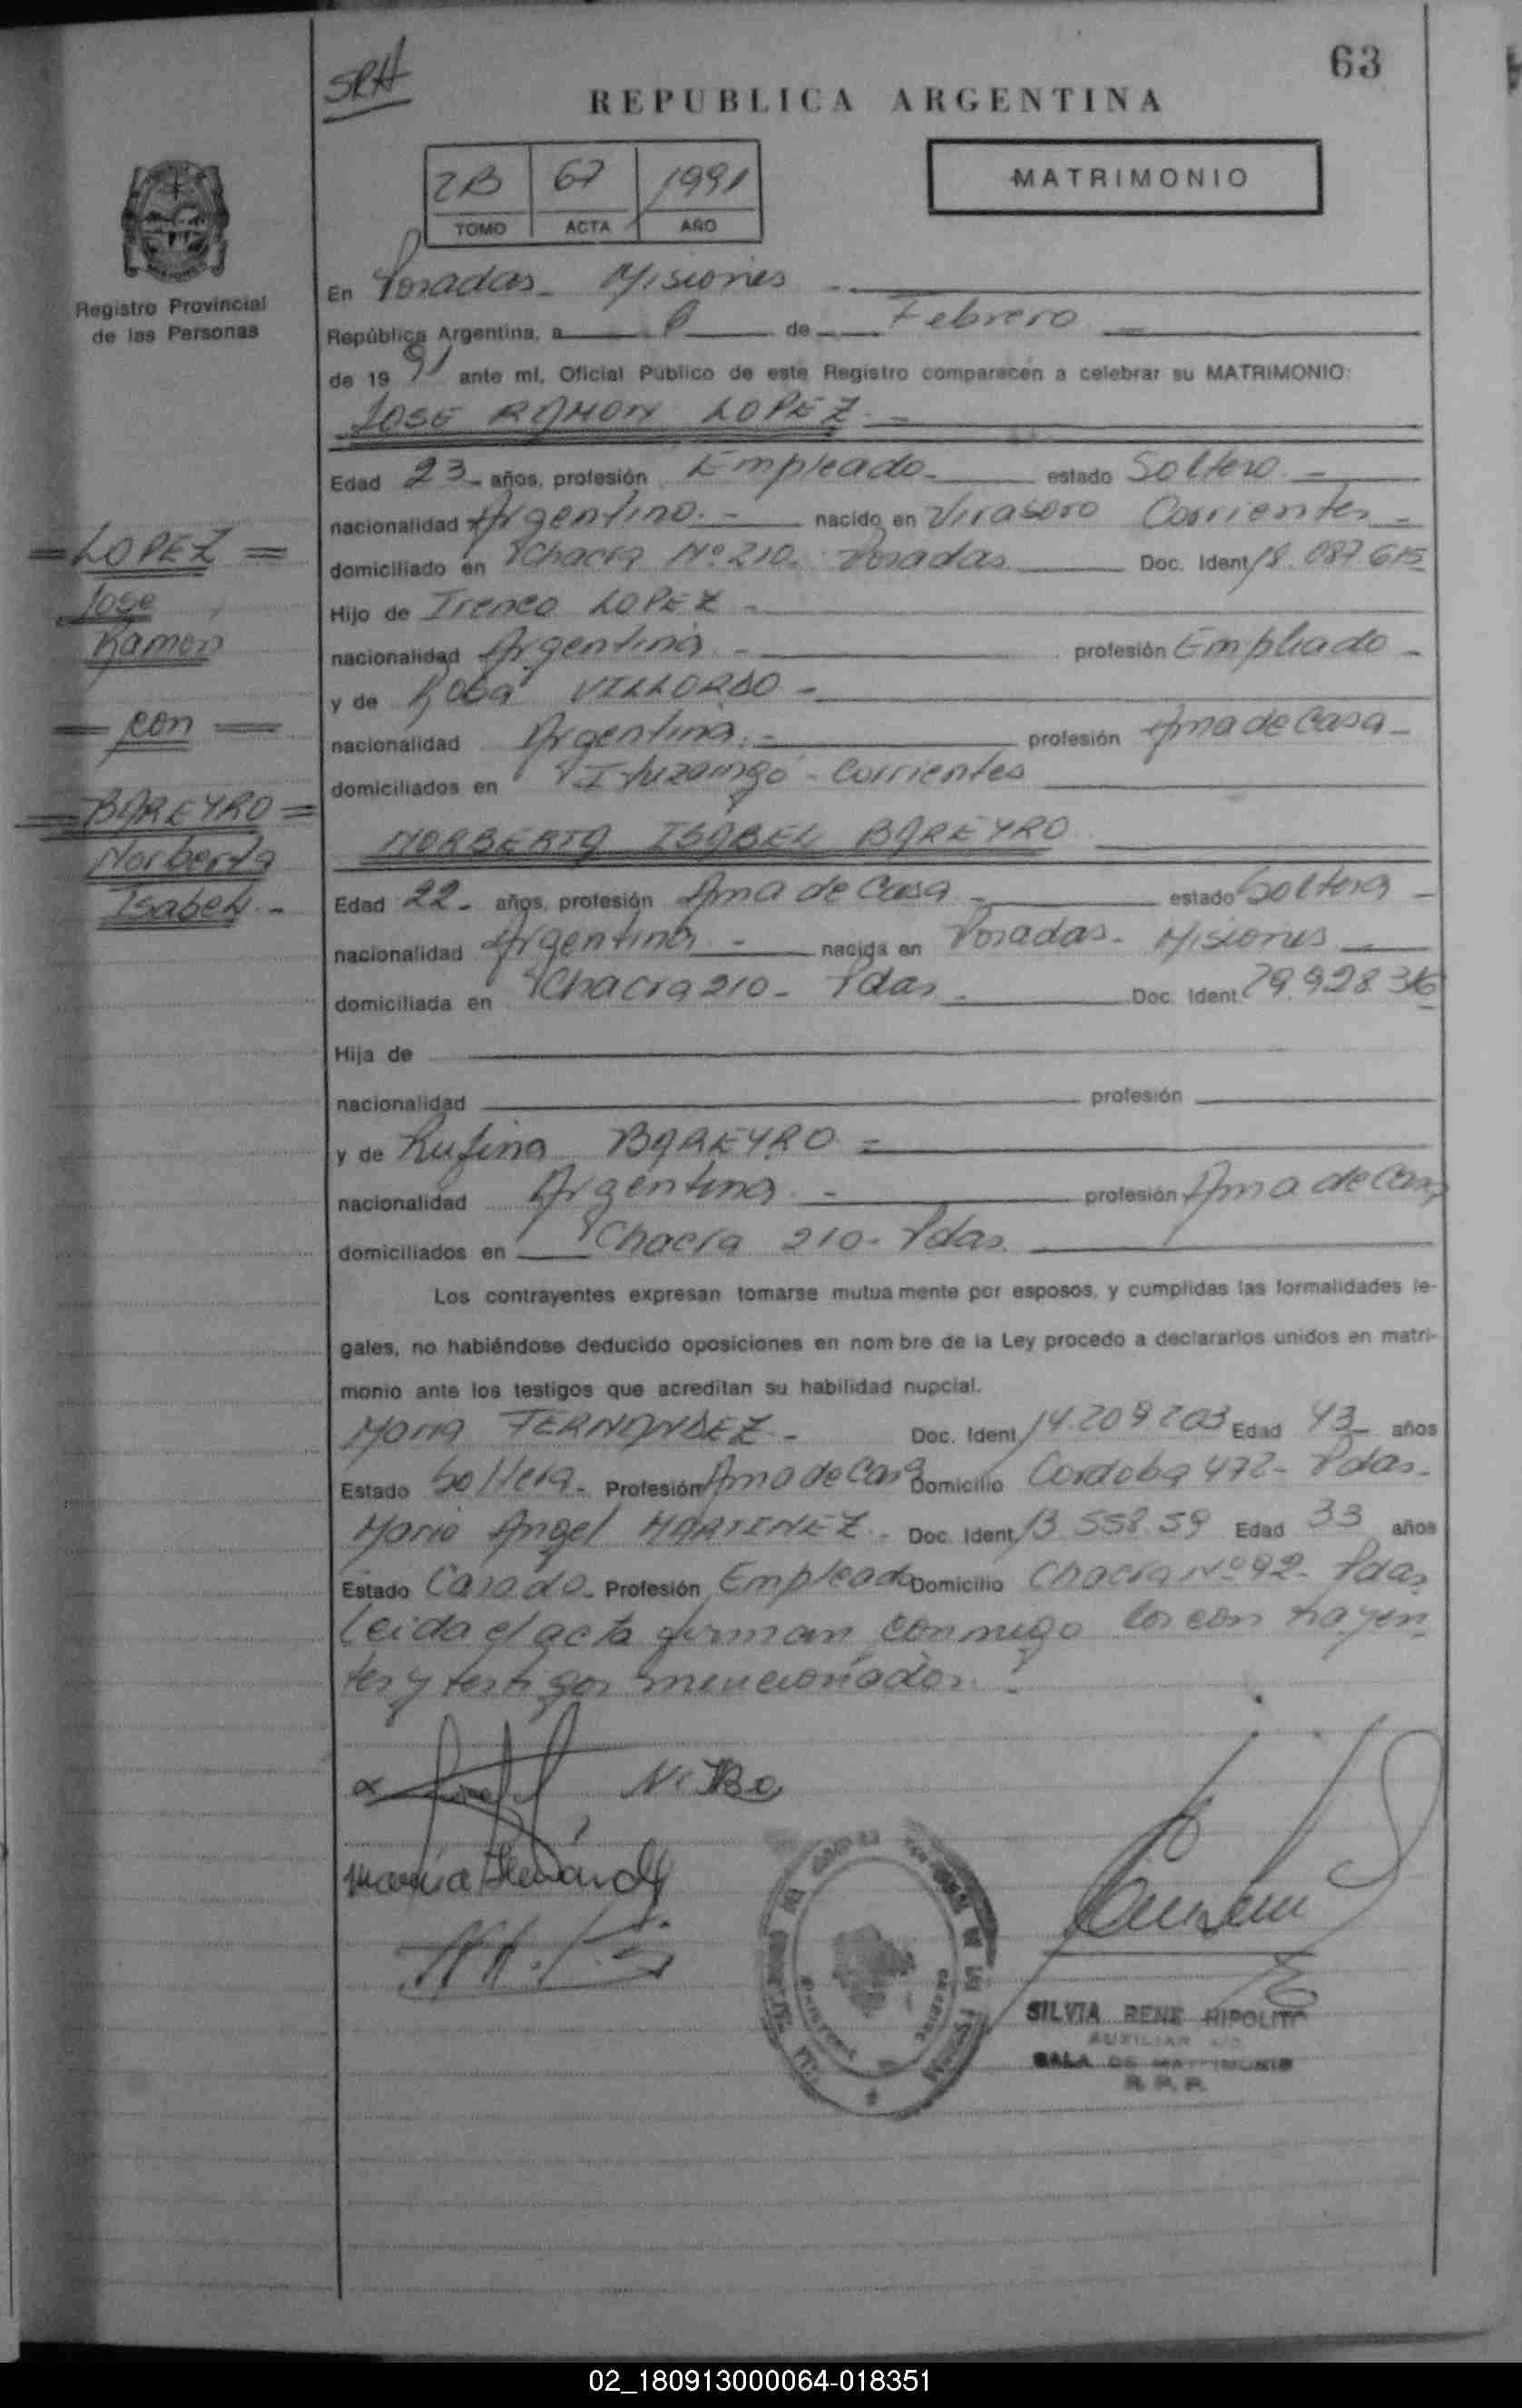 63
SRH
REPUBLICA ARGENTINA
2B 67 1991
TOMO ACTA AÑO
MATRIMONIO
Registro Provincial
de las Personas
En Posadas - Misiones
República Argentina, a 6 de Febrero
de 1991 ante mí, Oficial Público de este Registro comparecen a celebrar su MATRIMONIO:
JOSE RAMON LOPEZ
Edad 23 años, profesión Empleado estado Soltero
nacionalidad Argentino nacido en Virasoro Corrientes
domiciliado en Chacra Nº 210. Posadas Doc. Ident 18.087.615
Hijo de Ireneo LOPEZ
nacionalidad Argentina profesión Empleado
y de Rosa
nacionalidad Argentina profesión Ama de Casa
domiciliados en Ituzaingó - Corrientes
= LOPEZ =
Jose
Ramón
= con =
= BAREYRO =
Norberta
Isabel.-
NORBERTA ISABEL BAREYRO
Edad 22 años, profesión Ama de Casa estado Soltera
nacionalidad Argentina nacida en Posadas - Misiones
domiciliada en Chacra 210 - Pdas Doc. Ident.
Hija de
nacionalidad profesión
y de Rufina BAREYRO
nacionalidad Argentina profesión Ama de Casa
domiciliados en Chacra 210 - Pdas.
Los contrayentes expresan tomarse mutua mente por esposos, y cumplidas las formalidades le-
gales, no habiéndose deducido oposiciones en nom bre de la Ley procedo a declararlos unidos en matri-
monio ante los testigos que acreditan su habilidad nupcial.
Maria FERNANDEZ - Doc. Ident 14.209.203 Edad 43 años
Estado Soltera - Profesión Ama de Casa Domicilio Cordoba 472 - Pdas.
Mario Angel MARTINEZ - Doc. Ident 13 558.59 Edad 33 años
Estado Casado - Profesión Empleado Domicilio Chacra Nº 92 - Pdas
Leida el acta firman conmigo los contrayen
tes y testigos mencionados.-
SILVIA RENE HIPOLITO
AUXILIAR
SALA DE MATRIMONIO
R. P. P.
02_180913000064-018351